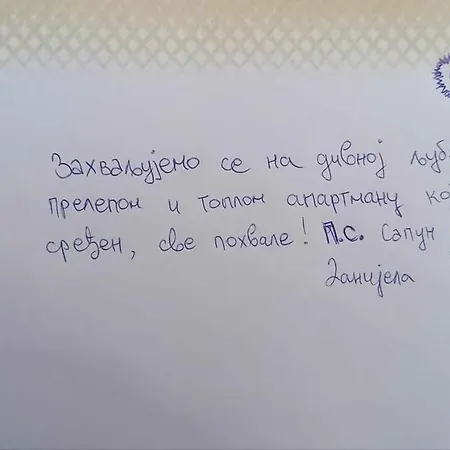 Захваљујемо се на дивној љуб
прелепом и топлом апартману ко
сређен, све похвале! П.С. Сапун
Данијела